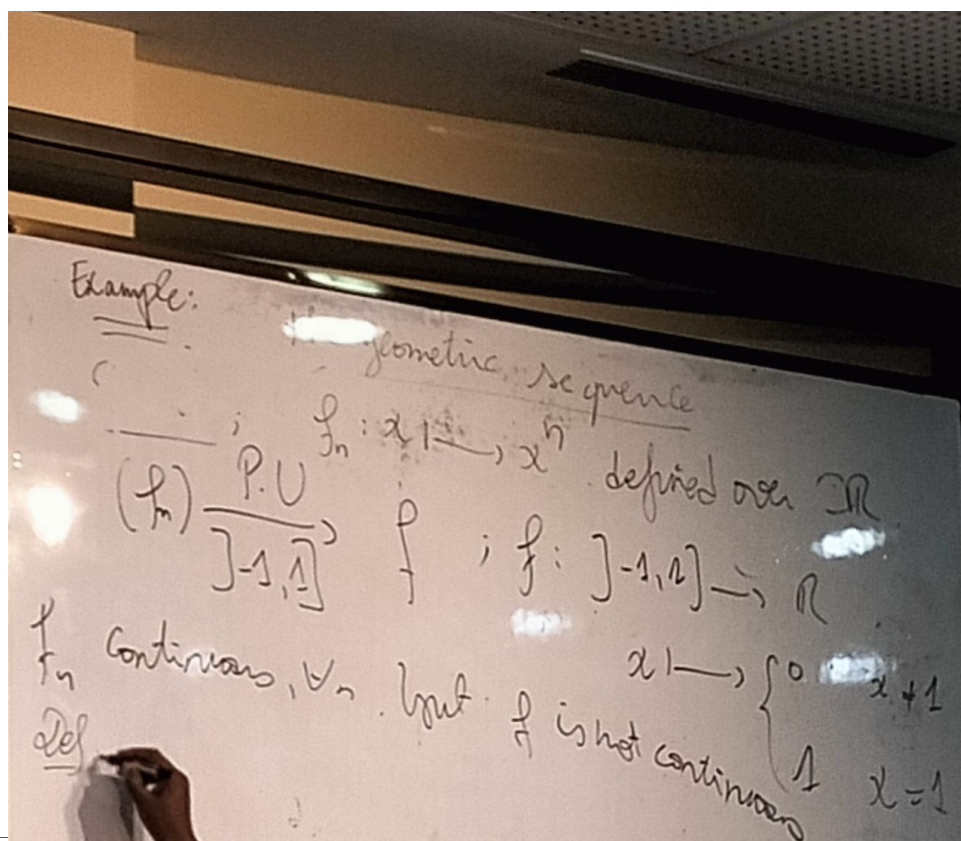 Example:
the geometric sequence
fₙ : x ↦ xⁿ defined over ℝ
(fₙ) P.U → ]-1,1] f ; f : ]-1,1] → ℝ
x ↦ { 0 x ≠ 1
1 x = 1
fₙ continuous, ∀n but f is not continuous
Def